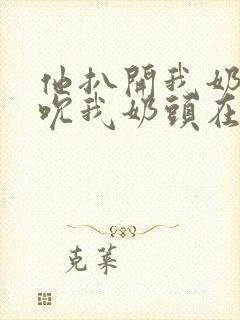 他扒開我奶
吹我奶頭在
克萊